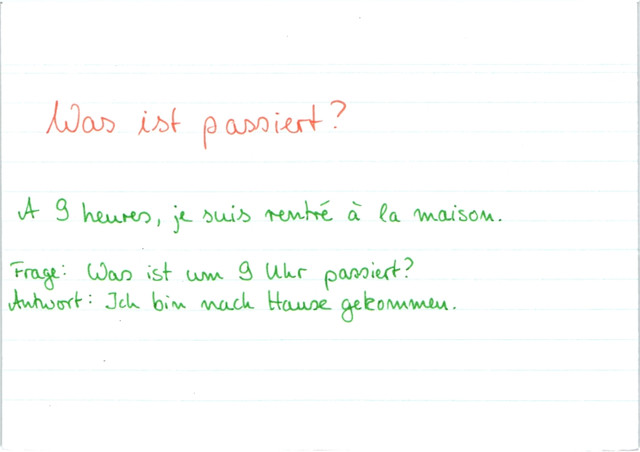 Was ist passiert?
A 9 heures, je suis rentré à la maison.
Frage: Was ist um 9 Uhr passiert?
Antwort: Ich bin nach Hause gekommen.